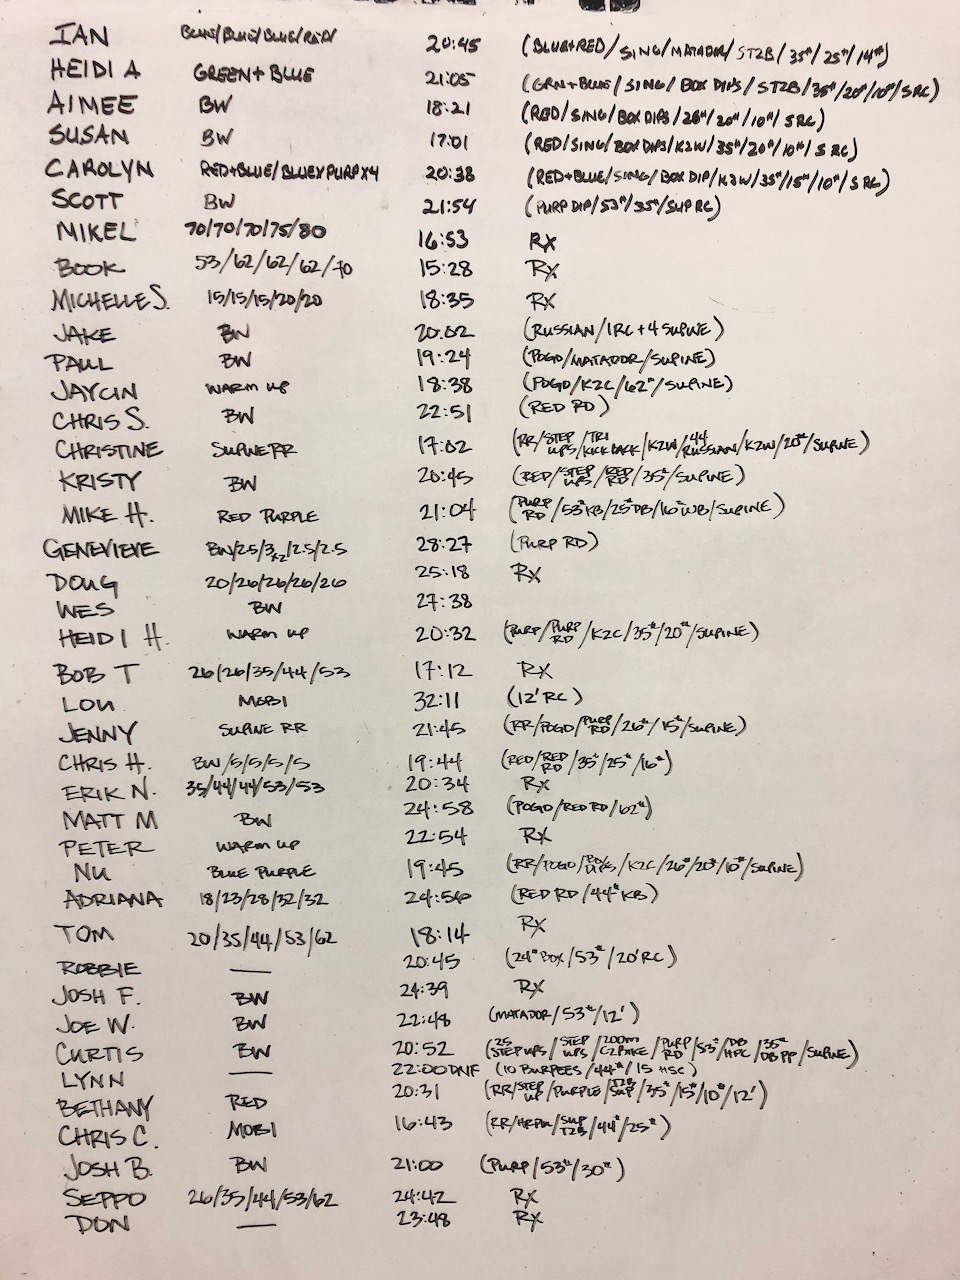 IAN BLUE/BLUE/BLUE/RED/ 20:45 (BLUE+RED/SING/MATADOR/ST2B/35#/25#/14")
HEIDI A GREEN+BLUE 21:05 (GRN+BLUE/SING/BOX DIPS/ST2B/35#/20#/10#/SRC)
AIMEE BW 18:21 (RED/SING/BOX DIPS/26#/20#/10#/SRC)
SUSAN BW 17:01 (RED/SING/BOX DIPS/K2W/35#/20#/10#/SRC)
CAROLYN RED+BLUE/BLUE+PURPX4 20:38 (RED+BLUE/SING/BOX DIP/K2W/35#/15#/10#/SRC)
SCOTT BW 21:54 (PURP DIP/53#/35#/SUPRC)
MIKEL 70/70/70/75/80 16:53 RX
BOOK 53/62/62/62/70 15:28 RX
MICHELLE S. 15/15/15/20/20 18:35 RX
JAKE BW 20:02 (RUSSIAN/1RC+4 SUPINE)
PAUL BW 19:24 (POGO/MATADOR/SUPINE)
JAYCIN WARM UP 18:38 (POGO/K2C/62#/SUPINE)
CHRIS S. BW 22:51 (RED RD)
CHRISTINE SUPINE RR 17:02 (RR/STEP UPS/TRI KICKBACK/K2W/44 RUSSIAN/K2W/20#/SUPINE)
KRISTY BW 20:45 (RED/STEP UPS/RED RD/35#/SUPINE)
MIKE H. RED PURPLE 21:04 (PURP RD/53#KB/25#DB/16#WB/SUPINE)
GENEVIEVE BW/2.5/3x2/2.5/2.5 28:27 (PURP RD)
DOUG 20/26/26/26/26 25:18 RX
WES BW 27:38
HEIDI H. WARM UP 20:32 (PURP/PURP RD/K2C/35#/20#/SUPINE)
BOB T 26/26/35/44/53 17:12 RX
LOU MOBI 32:11 (12' RC)
JENNY SUPINE RR 21:45 (RR/POGO/PURP RD/26#/15#/SUPINE)
CHRIS H. BW/5/5/5/5 19:44 (RED/RED RD/35#/25#/16#)
ERIK N. 35/44/44/53/53 20:34 RX
MATT M BW 24:58 (POGO/RED RD/62#)
PETER WARM UP 22:54 RX
NU BLUE PURPLE 19:45 (RR/POGO/BOX DIPS/K2C/26#/20#/10#/SUPINE)
ADRIANA 18/23/28/32/32 24:56 (RED RD/44#KB)
TOM 20/35/44/53/62 18:14 RX
ROBBIE — 20:45 (24" BOX/53#/20'RC)
JOSH F. BW 24:39 RX
JOE W. BW 22:48 (MATADOR/53#/12')
CURTIS BW 20:52 (25 STEP UPS/STEP UPS/200m C2 BIKE/PURP RD/53#/DB HPC/35# DB PP/SUPINE)
LYNN — 22:00 DNF (10 BURPEES/44#/15 HSC)
BETHANY RED 20:31 (RR/STEP UP/PURPLE/T2B SUP/35#/15#/10#/12')
CHRIS C. MOBI 16:43 (RR/HRPU/SUP T2B/44#/25#)
JOSH B. BW 21:00 (PURP/53#/30#)
SEPPO 26/35/44/53/62 24:42 RX
DON — 23:48 RX